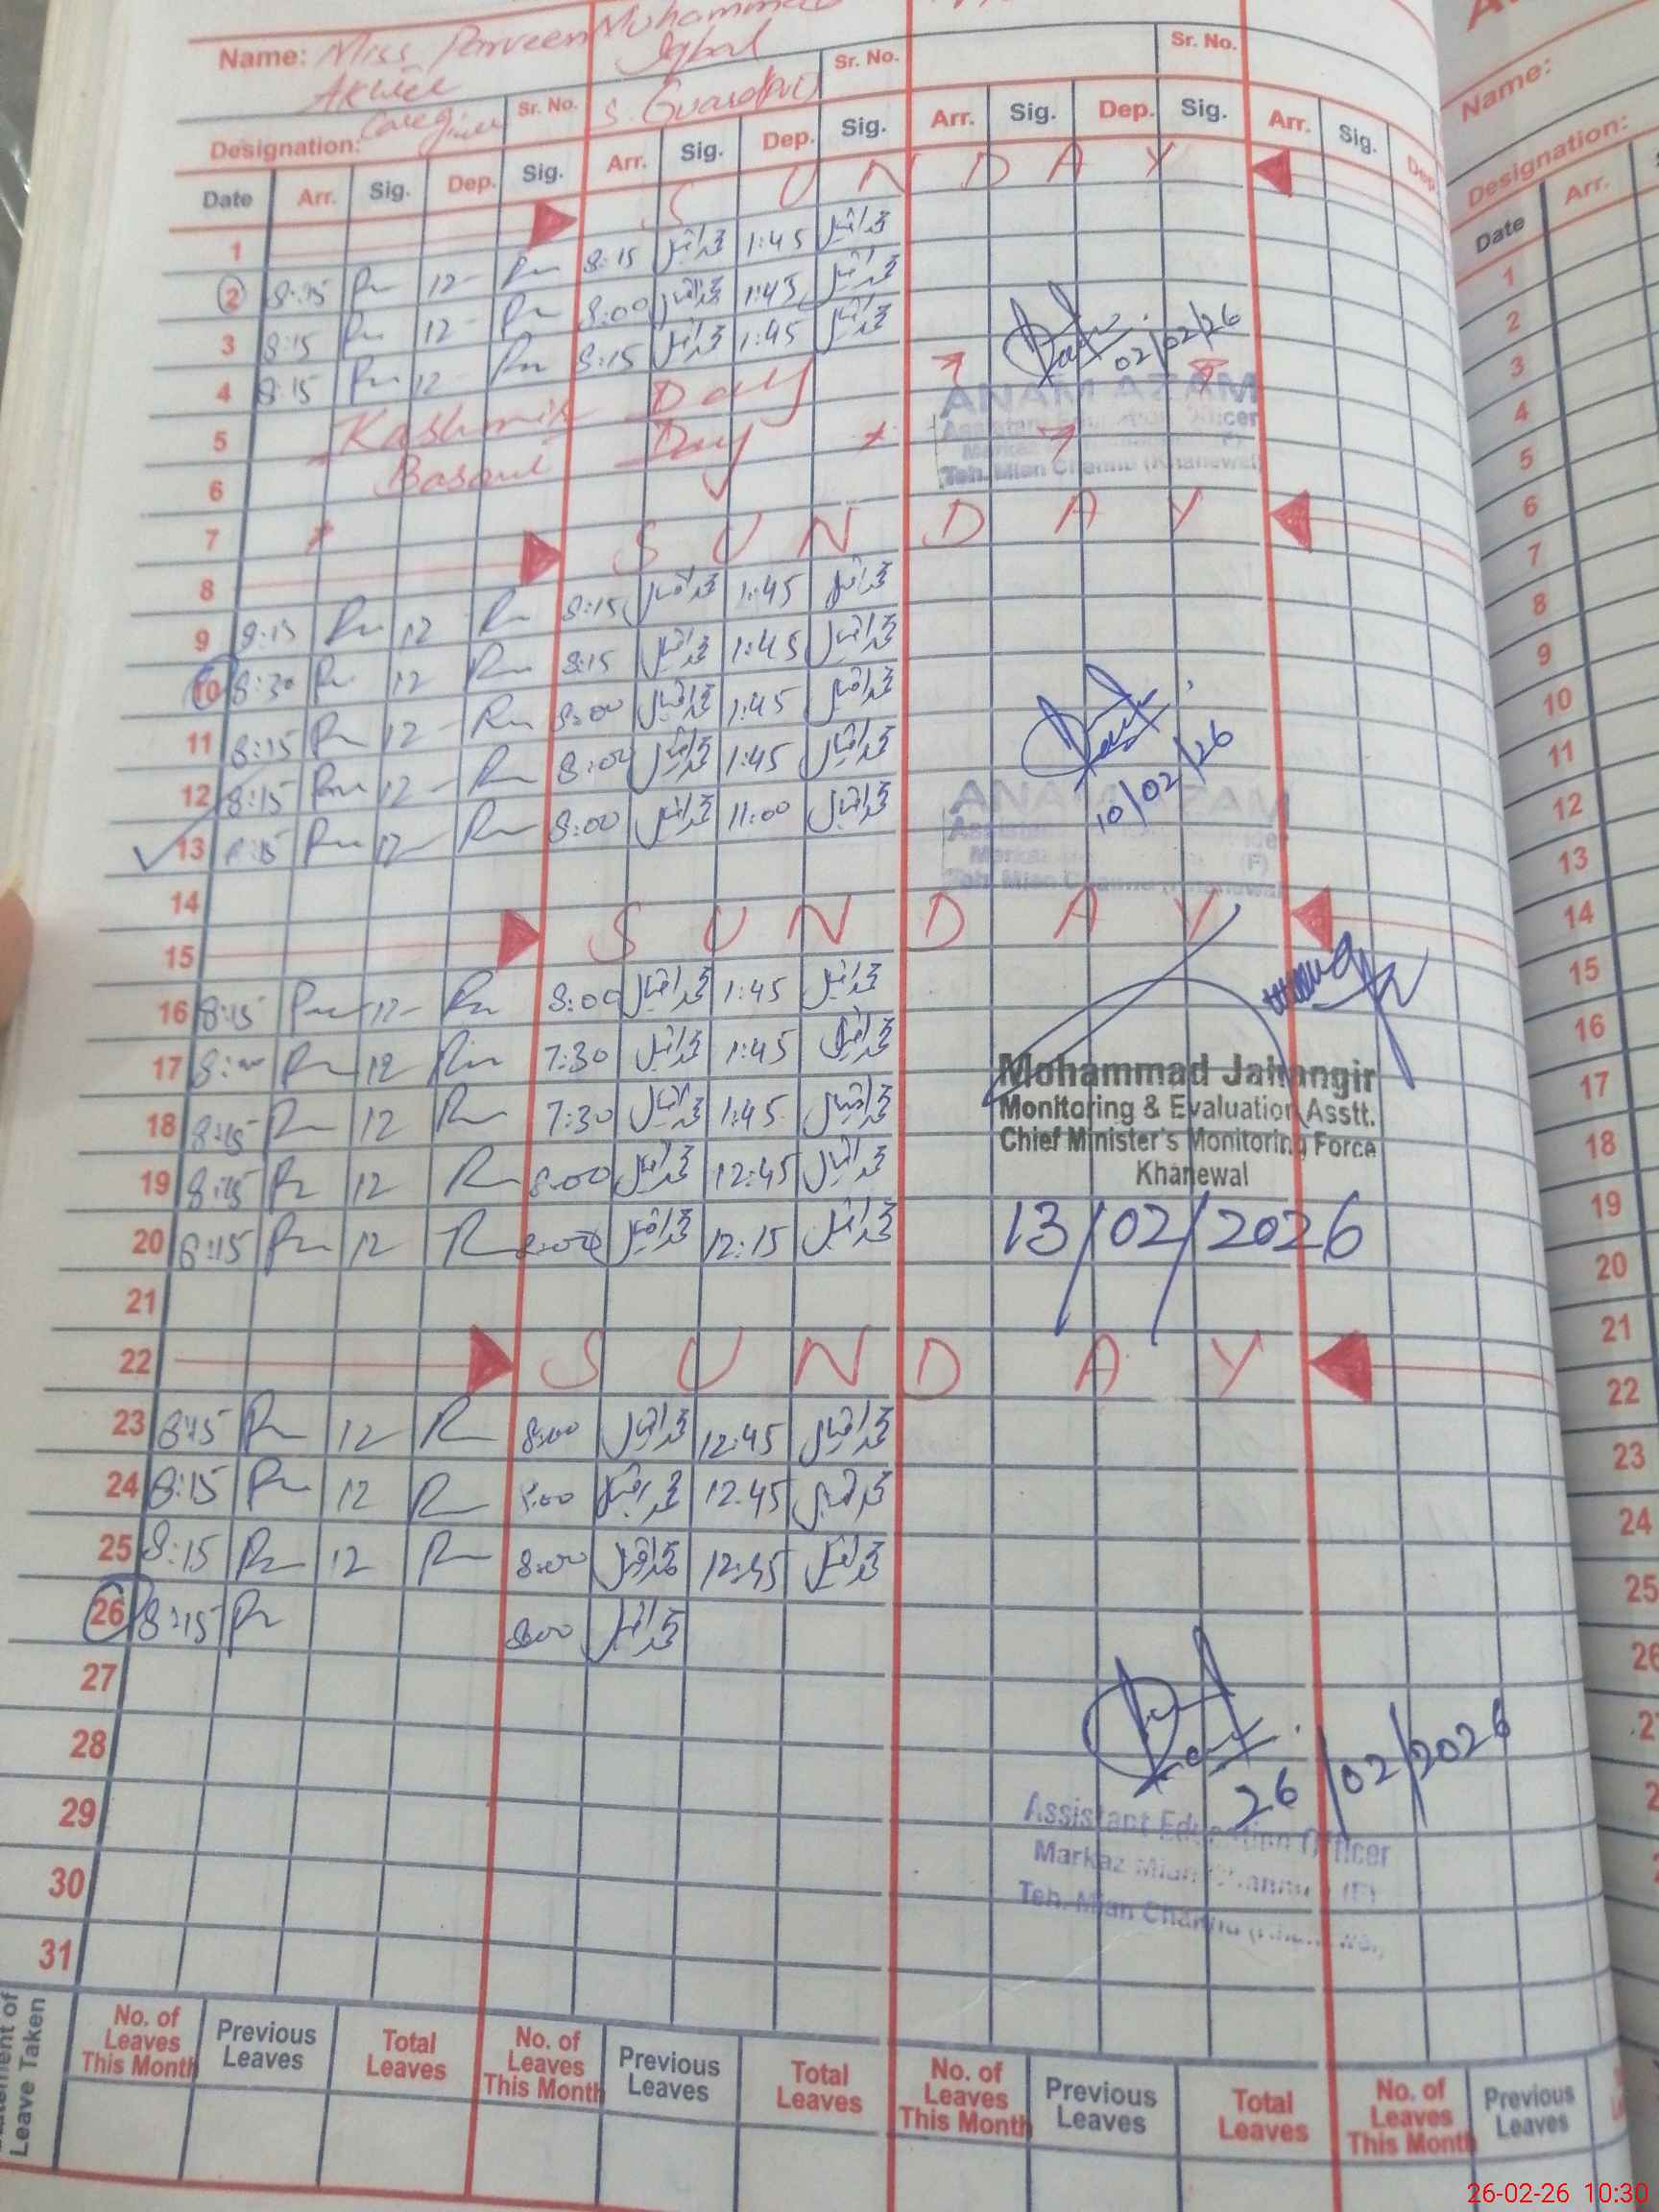 Name: Miss Parveen Muhammad
Akhter Iqbal
Sr. No. Sr. No. Sr. No.
Designation: Caregiver S. Guard
Date Arr. Sig. Dep. Sig. Arr. Sig. Dep. Sig. Arr. Sig. Dep. Sig. Arr. Sig. Dep.
1 S U N D A Y
2 8:15 12 8:15 محمد اقبال 1:45 محمد اقبال
3 8:15 12 8:00 محمد اقبال 1:45 محمد اقبال
4 8:15 12 8:15 محمد اقبال 1:45 محمد اقبال
02/02/26
ANAM AZAM
Assistant Officer
Markaz
Teh. Mian Channu (Khanewal)
5 Kashmir Day
6 Basant Day
7
8 S U N D A Y
9 8:15 12 8:15 محمد اقبال 1:45 محمد اقبال
10 8:30 12 8:15 محمد اقبال 1:45 محمد اقبال
11 8:15 12 8:00 محمد اقبال 1:45 محمد اقبال
12 8:15 12 8:00 محمد اقبال 1:45 محمد اقبال
13 8:15 12 8:00 محمد اقبال 11:00 محمد اقبال
10/02/26
ANAM AZAM
Markaz (F)
Teh. Mian Channu (Khanewal)
14
15 S U N D A Y
16 8:15 12 8:00 محمد اقبال 1:45 محمد اقبال
17 8:00 12 7:30 محمد اقبال 1:45 محمد اقبال
18 8:15 12 7:30 محمد اقبال 1:45 محمد اقبال
19 8:15 12 8:00 محمد اقبال 12:45 محمد اقبال
20 8:15 12 8:00 محمد اقبال 12:15 محمد اقبال
Mohammad Jahangir
Monitoring & Evaluation Asstt.
Chief Minister's Monitoring Force
Khanewal
13/02/2026
21
22 S U N D A Y
23 8:15 12 8:00 محمد اقبال 12:45 محمد اقبال
24 8:15 12 8:00 محمد اقبال 12:45 محمد اقبال
25 8:15 12 8:00 محمد اقبال 12:45 محمد اقبال
26 8:15 8:00 محمد اقبال
27
28
29
30
31
26/02/2026
Assistant Education Officer
Markaz Mian Channu (F)
Teh. Mian Channu
Leave Taken
No. of Leaves This Month Previous Leaves Total Leaves No. of Leaves This Month Previous Leaves Total Leaves No. of Leaves This Month Previous Leaves Total Leaves No. of Leaves This Month Previous Leaves
Name:
Designation:
Date Arr.
1
2
3
4
5
6
7
8
9
10
11
12
13
14
15
16
17
18
19
20
21
22
23
24
25
26
26-02-26 10:30